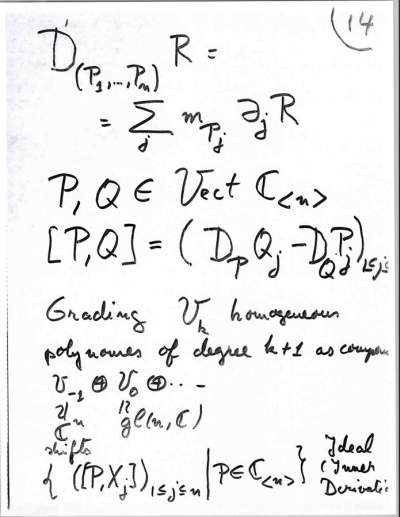 14
D_(P_1,...,P_n) R =
= ∑_j m_{P_j} ∂_j R
P, Q ∈ Vect ℂ_<n>
[P,Q] = ( D_P Q_j - D_Q P_j )_{1≤j≤
Grading V_k homogeneous
polynomes of degree k+1 as compon
V_{-1} ⊕ V_0 ⊕ ...
ℂ^n gl(n, ℂ)
shifts
{ ([P, X_j])_{1≤j≤n} | P ∈ ℂ_<n> } Ideal
(Inner
Derivati